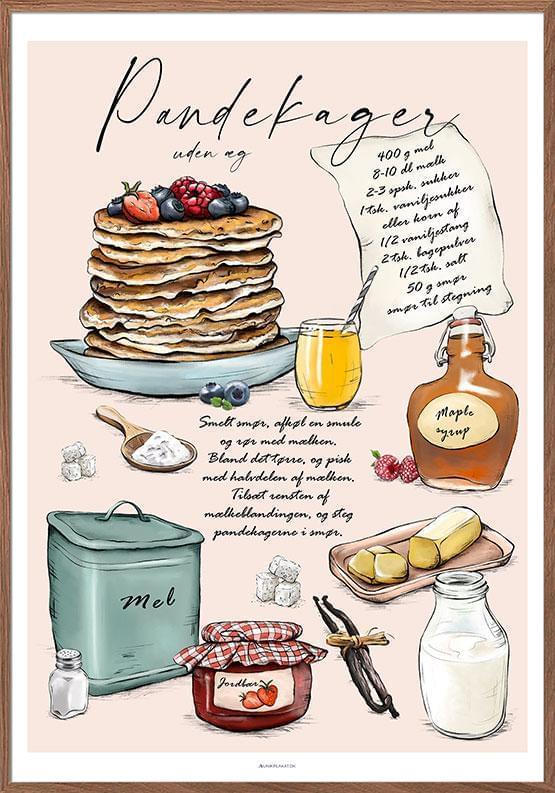 Pandekager
uden æg
400 g mel
8-10 dl mælk
2-3 spsk. sukker
1 tsk. vaniljesukker
eller korn af
1/2 vaniljestang
2 tsk. bagepulver
1/2 tsk. salt
50 g smør
smør til stegning
Smelt smør, afkøl en smule
og rør med mælken.
Bland det tørre, og pisk
med halvdelen af mælken.
Tilsæt rensten af
mælkeblandingen, og steg
pandekagerne i smør.
Maple
syrup
Mel
Jordbær
UNIKPLAKAT.DK